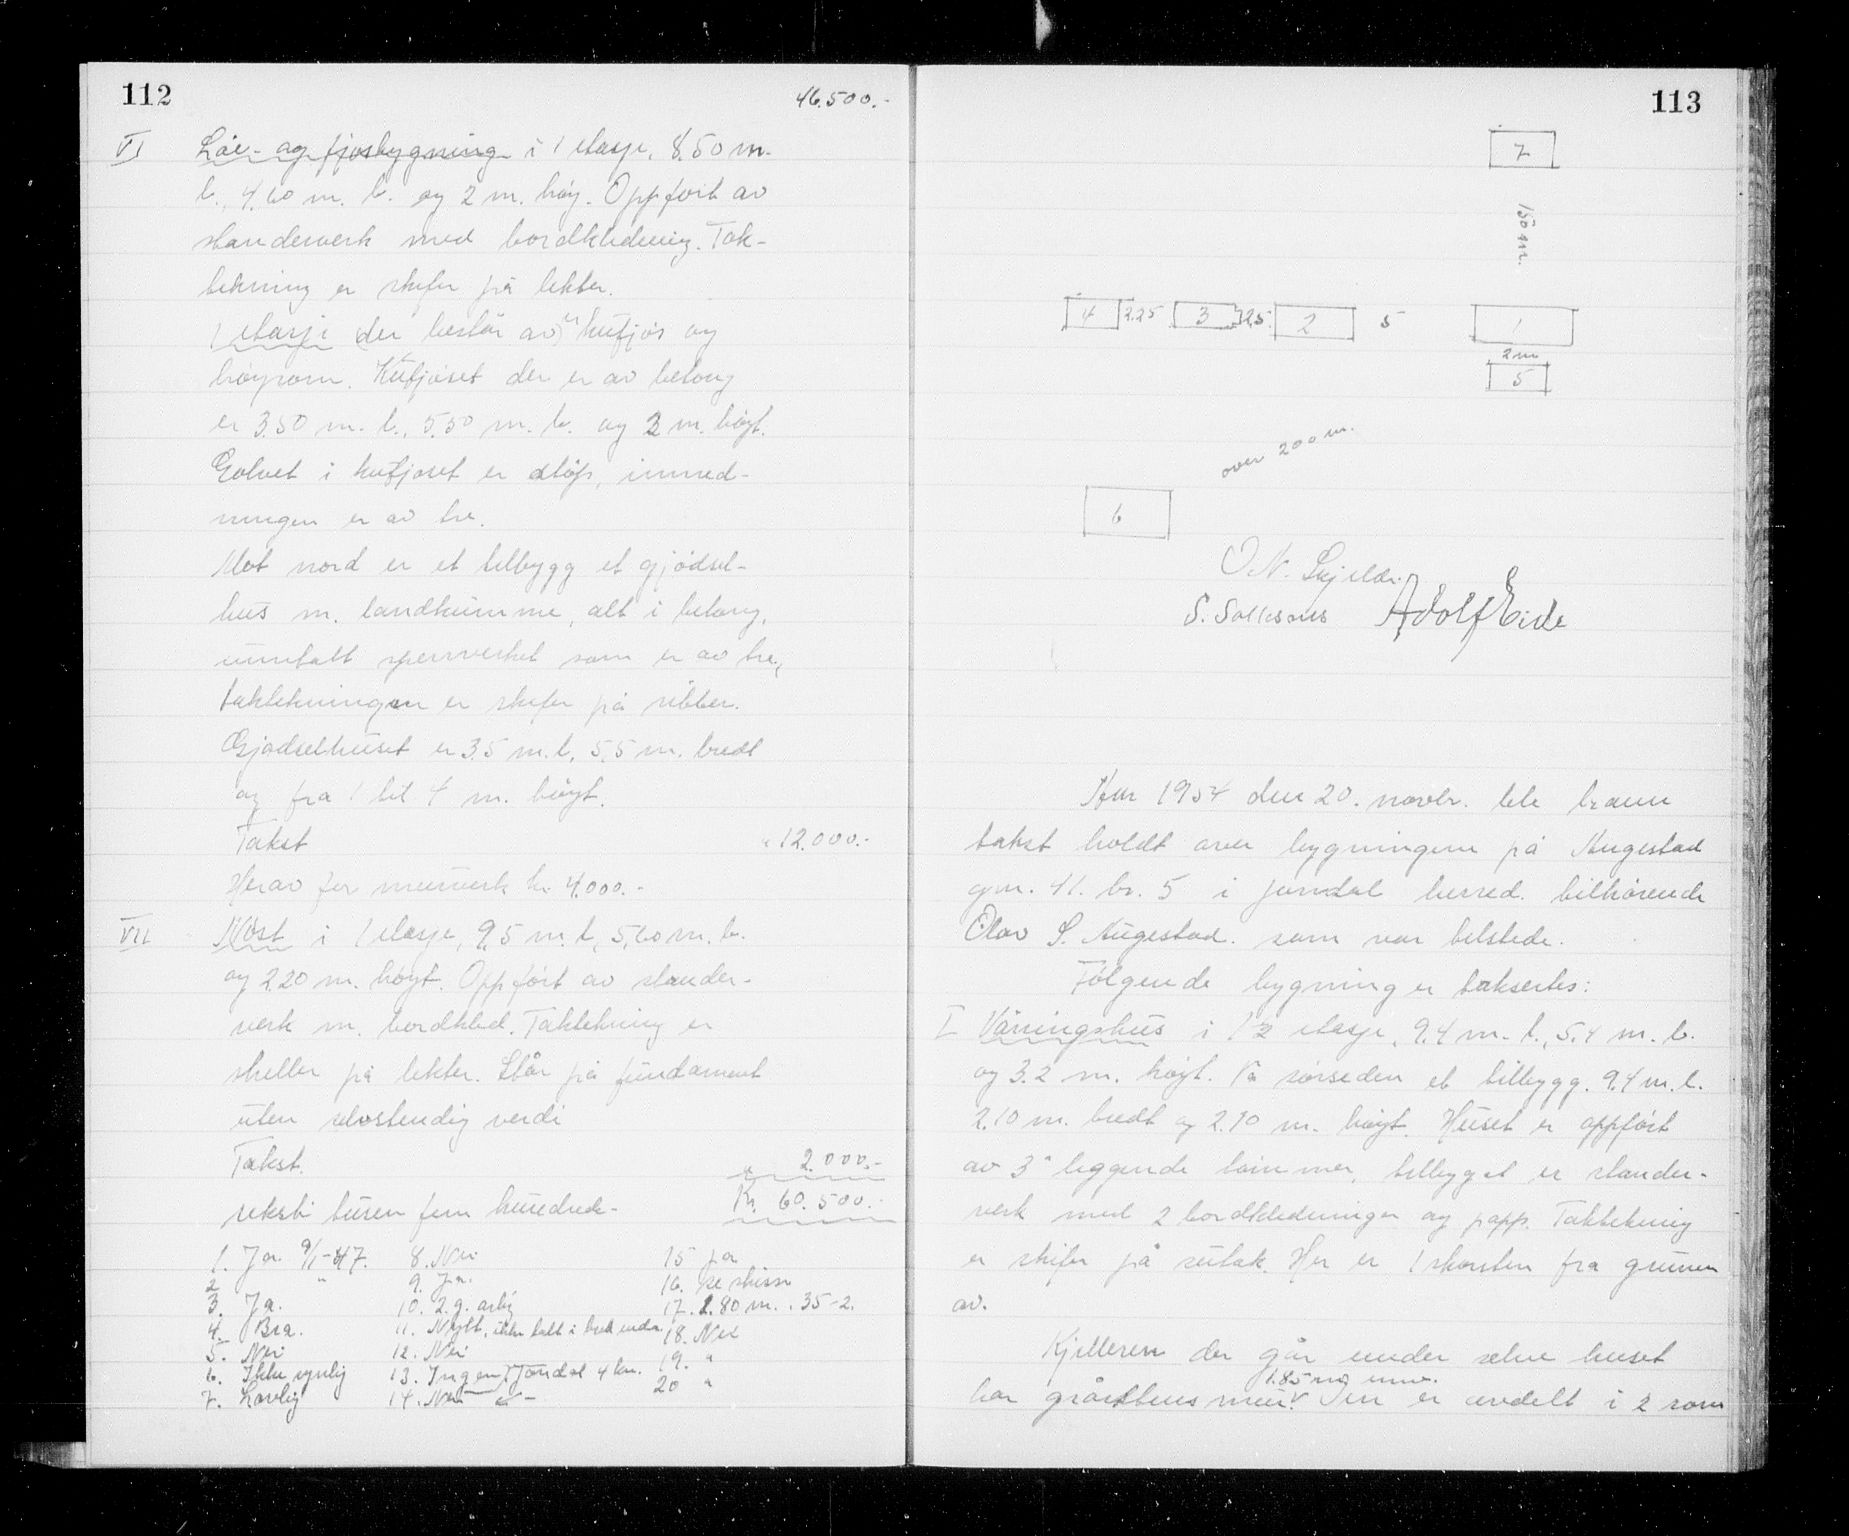 112
46.500.-
VI Löe- og fjosbygning i 1 etasje, 8.50 m.
l., 4.60 m. b. og 2 m. høy. Oppført av
standerverk med bordkledning. Tak-
tekning er skifer på lekter.
1 etasje der består av kufjøs og
høyrom. Kufjøset der er av betong
er 3.50 m. l., 5.50 m. b. og 2 m. høgt.
Golvet i kufjøset er støp, innred-
ningen er av tre.
Mot nord er et tilbygg et gjødsel-
hus m. landkumme, alt i betong,
unntatt sperrverket som er av tre,
taktekningen er skifer på ribber.
Gjødselhuset er 3.5 m. l. 5,5 m. bredt
og fra 1 til 4 m. høyt.
Takst " 12.000.-
Herav for murverk kr 4.000.-
VII Nöst i 1 etasje, 9,5 m. l, 5,60 m. b.
og 2.20 m. høyt. Oppført av stander-
verk m. bordkled. Taktekning er
skeller på lekter. Står på fundament
uten selvstendig verdi
Takst. " 2.000.-
seksti tusen fem hundrede- Kr. 60.500.-
1. Ja 9/1-47. 8. Nei 15 Ja
2 " 9. Ja. 16. se skisse
3. Ja. 10. 2. g. årlig 17. 1.80 m. . 35-2.
4. Bra. 11. Nytt, ikke tatt i bruk enda. 18. Nei
5. Nei 12. Nei 19. "
6. Ikke synlig 13. Ingen Jondal 4 km. 20 "
7. Lovlig 14. Nei
113
7
150 m.
4 2.25 3 2,5 2 5 1
2 m
5
over 200 m.
6
O. N. Skjeldr.
S. Sollesnes Adolf Eide
År 1954 den 20. novbr. ble brann
takst holdt over bygningene på Augestad
gm. 41. br. 5 i Jondal herred. tilhørende
Olav S. Augestad. som var tilstede.
Følgende bygninger taksertes:
I Våningshus i 1 1/2 etasje, 9.4 m. l., 5.4 m. b.
og 3.2 m. høyt. På sørseden et tilbygg. 9.4 m. l.
2.10 m. bredt og 2.10 m. høyt. Huset er oppført
av 3" liggende tømmer, tilbyget er stander-
verk med 2 bordkledninger og papp. Taktekning
er skifer på sutak. Her er 1 skorsten fra grunnen
av.
Kjelleren der går under selve huset
1.85 m
har gråsteins mur. Den er avdelt i 2 rom